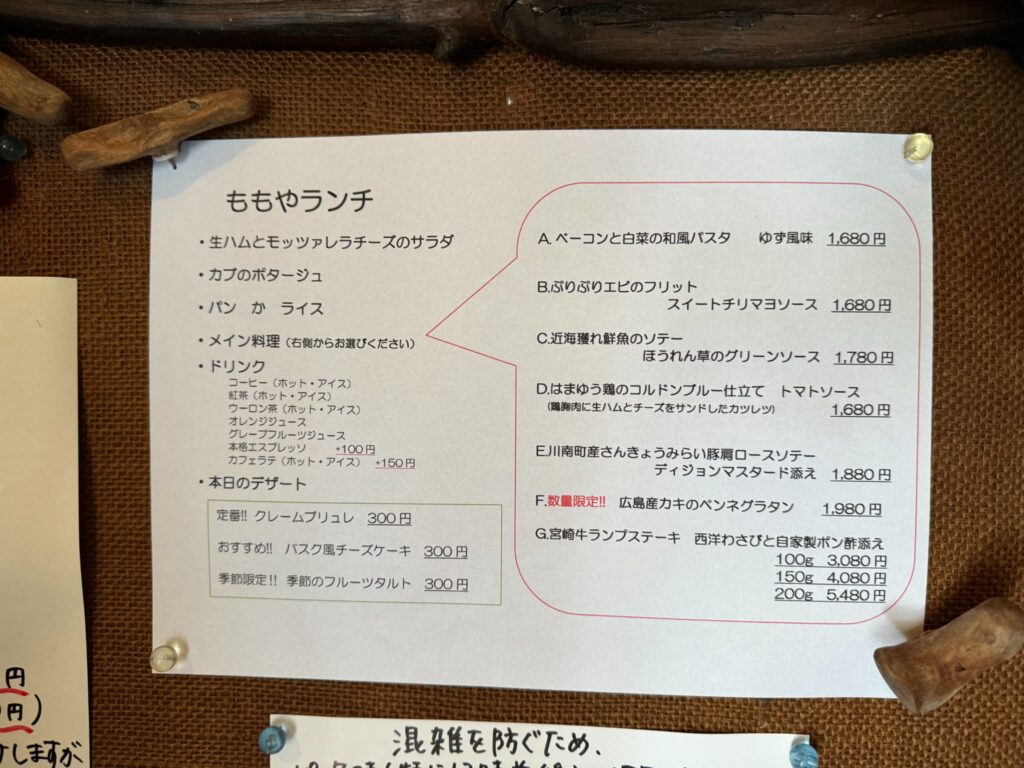 ももやランチ
・生ハムとモッツァレラチーズのサラダ
・カブのポタージュ
・パン か ライス
・メイン料理（右側からお選びください）
・ドリンク
コーヒー（ホット・アイス）
紅茶（ホット・アイス）
ウーロン茶（ホット・アイス）
オレンジジュース
グレープフルーツジュース
本格エスプレッソ +100円
カフェラテ（ホット・アイス） +150円
・本日のデザート
定番!! クレームブリュレ 300円
おすすめ!! バスク風チーズケーキ 300円
季節限定!! 季節のフルーツタルト 300円
A. ベーコンと白菜の和風パスタ ゆず風味 1,680円
B.ぷりぷりエビのフリット
スイートチリマヨソース 1,680円
C.近海獲れ鮮魚のソテー
ほうれん草のグリーンソース 1,780円
D.はまゆう鶏のコルドンブルー仕立て トマトソース
（鶏胸肉に生ハムとチーズをサンドしたカツレツ） 1,680円
E.川南町産さんきょうみらい豚肩ロースソテー
ディジョンマスタード添え 1,880円
F.数量限定!! 広島産カキのペンネグラタン 1,980円
G.宮崎牛ランプステーキ 西洋わさびと自家製ポン酢添え
100g 3,080円
150g 4,080円
200g 5,480円
円
円)
しますが
混雑を防ぐため、